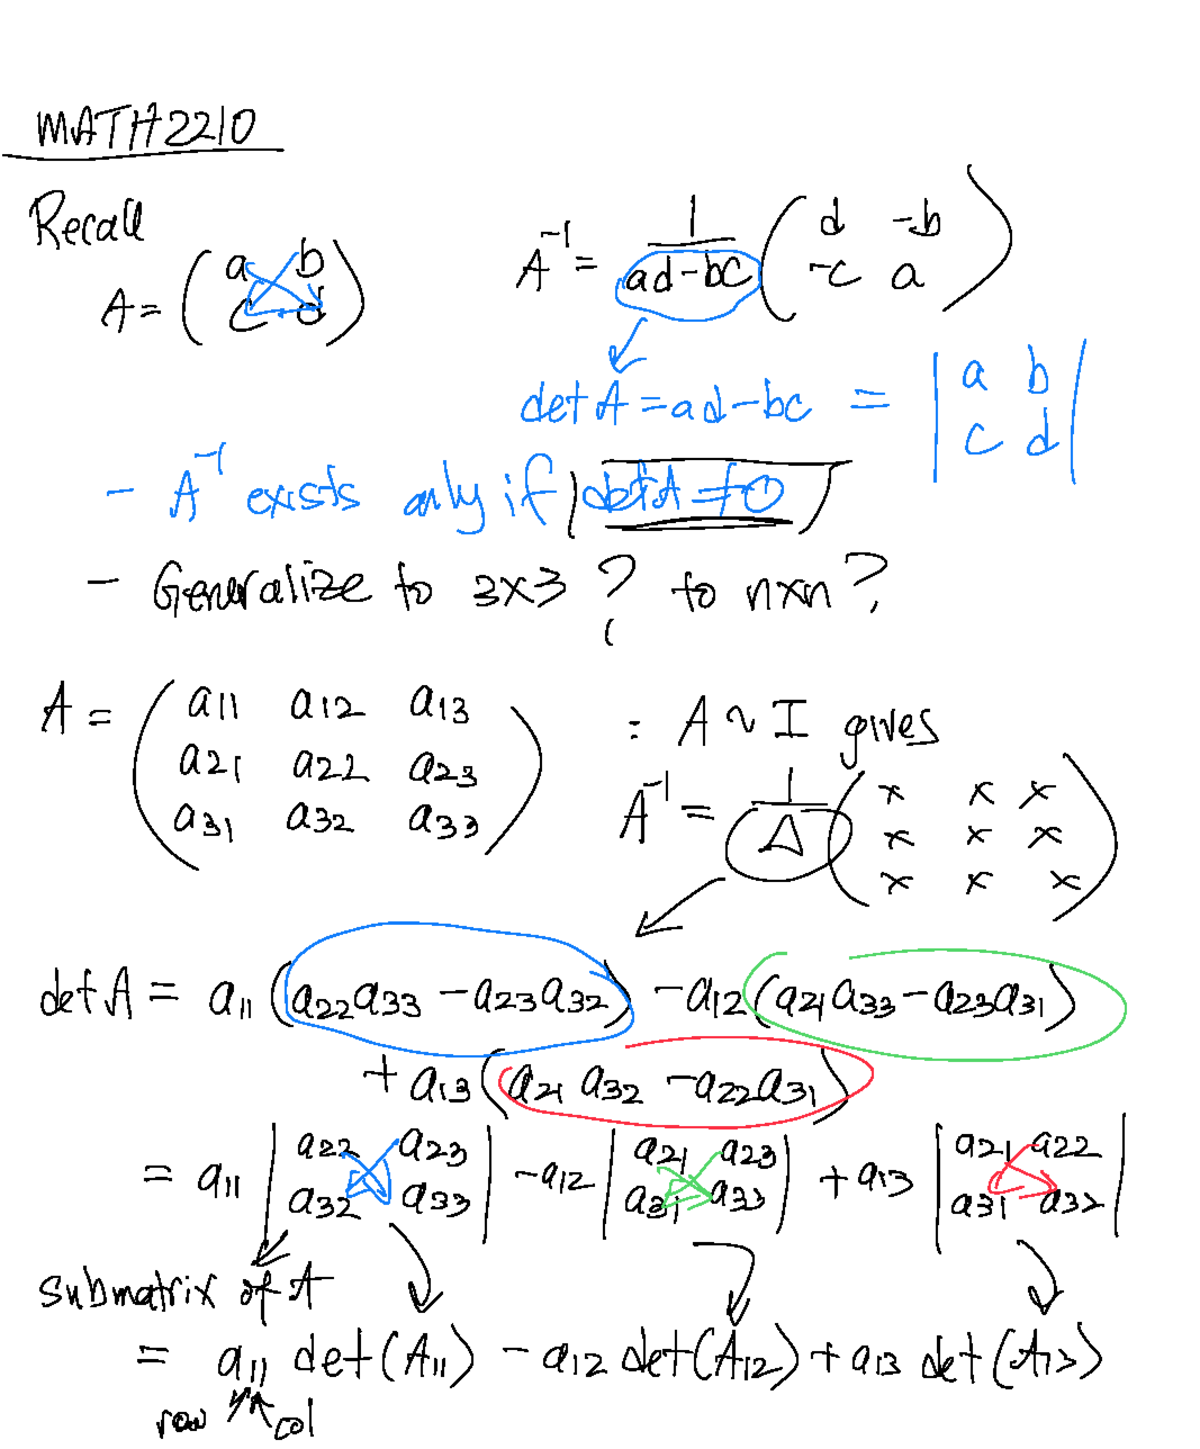 MATH2210
Recall
A = ( a b
c d )
A⁻¹ = 1/(ad-bc) ( d -b
-c a )
det A = ad-bc = | a b
c d |
- A⁻¹ exists only if det A ≠ 0
- Generalize to 3x3 ? to nxn ?
A = ( a11 a12 a13
a21 a22 a23
a31 a32 a33 )
: A ~ I gives
A⁻¹ = 1/Δ ( x x x
x x x
x x x )
det A = a11 (a22a33 - a23a32) - a12 (a21a33 - a23a31)
+ a13 (a21 a32 - a22a31)
= a11 | a22 a23 | - a12 | a21 a23 | + a13 | a21 a22 |
| a32 a33 | | a31 a33 | | a31 a32 |
submatrix of A
= a11 det(A11) - a12 det(A12) + a13 det(A13)
row col